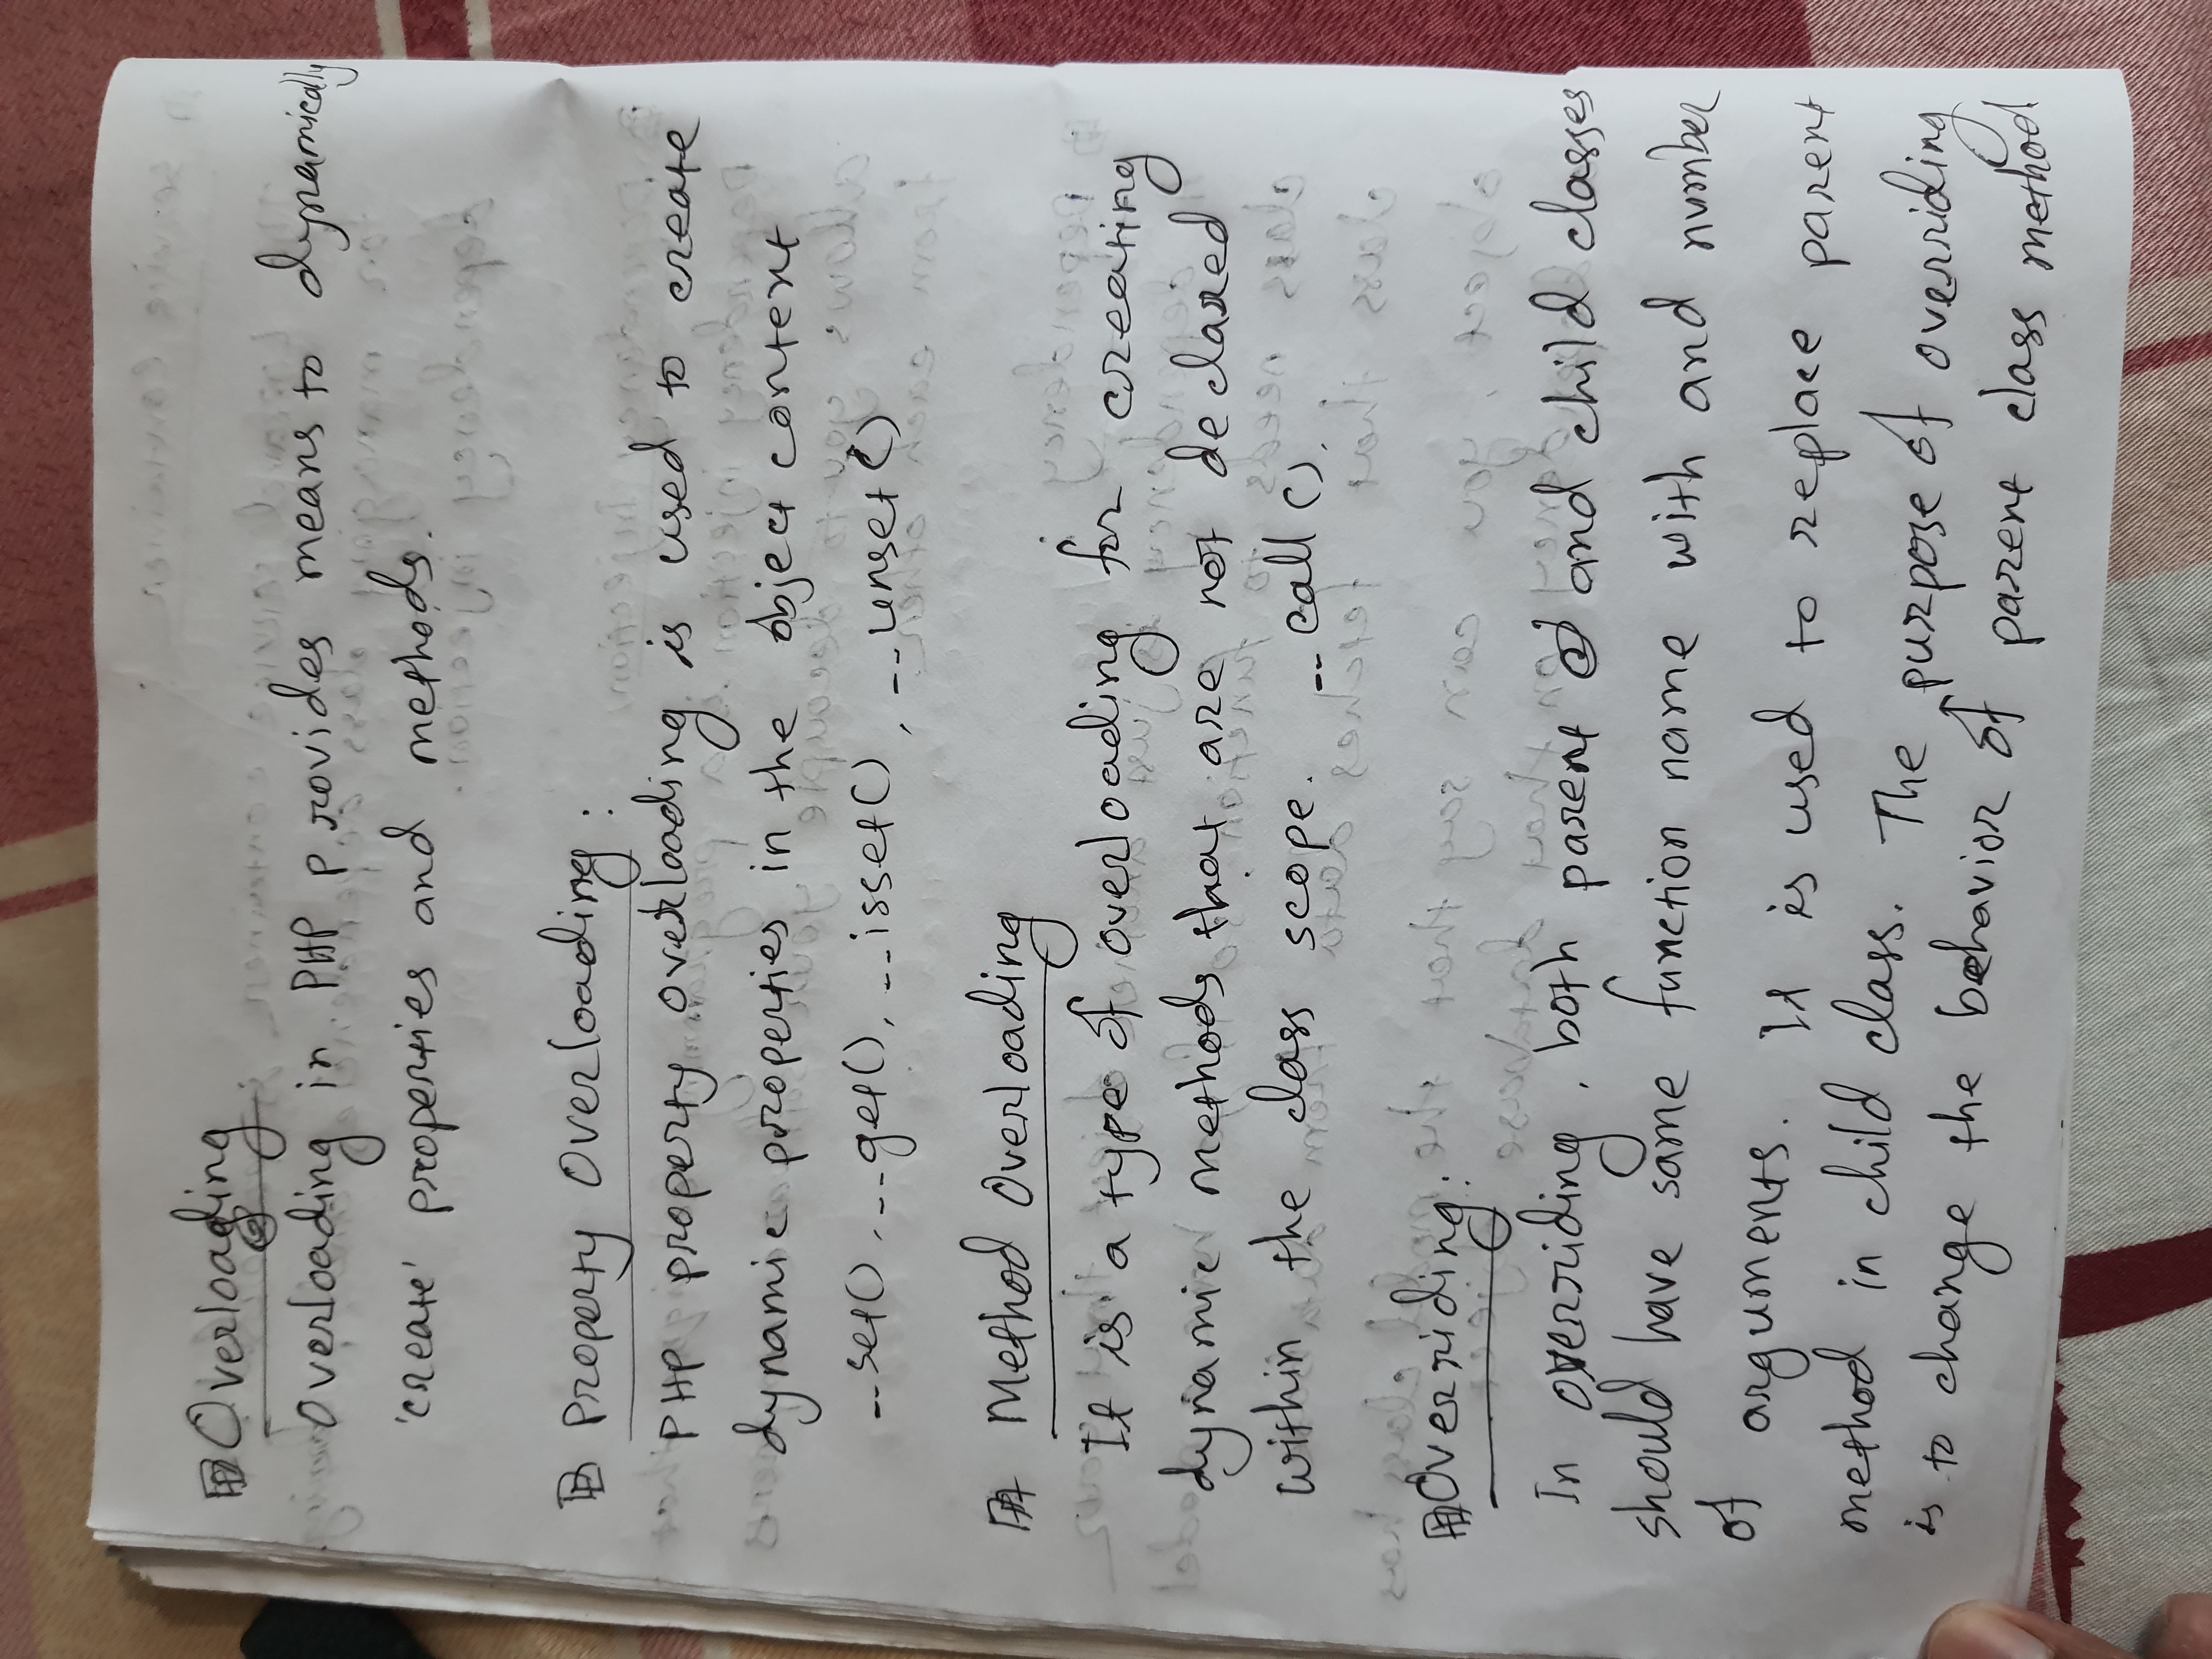 Overloading
Overloading in PHP provides means to dynamically
'create' properties and methods.
Property Overloading:
PHP property overloading is used to create
dynamic properties in the object content
__set(), __get(), __isset(), __unset()
Method Overloading
It is a type of overloading for creating
dynamic methods that are not declared
within the class scope. __call().
Overriding:
In overriding, both parent and child classes
should have same function name with and number
of arguments. It is used to replace parent
method in child class. The purpose of overriding
is to change the behavior of parent class method